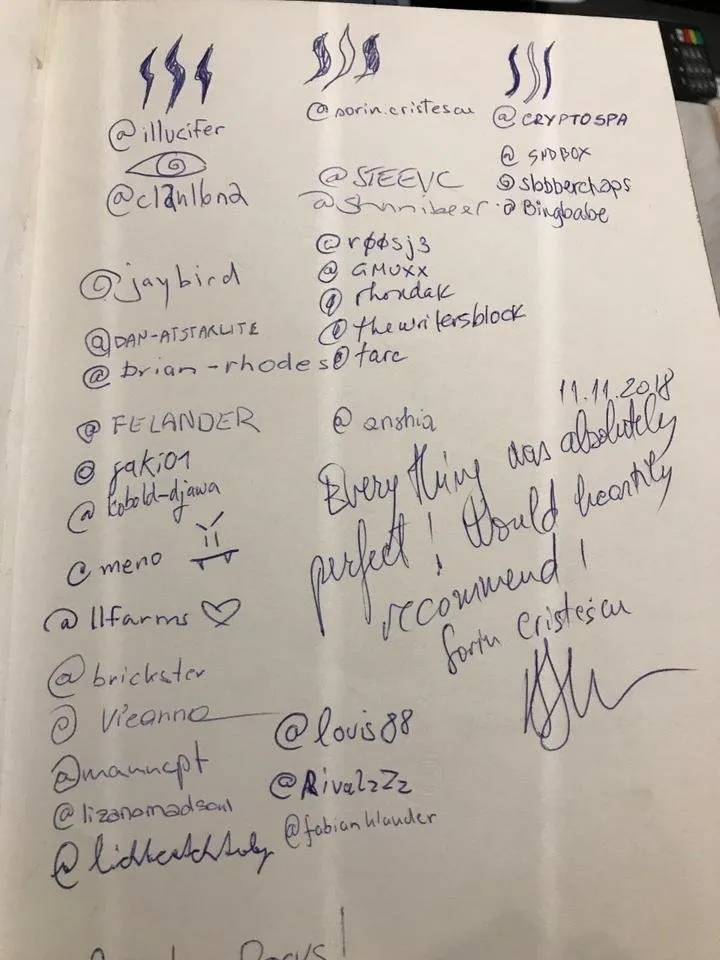 @illucifer
@clanlbna
@jaybird
@DAN-ATSTARLITE
@brian-rhodes
@FELANDER
@jaki01
@kobold-djawa
@meno
@llfarms
@brickster
@Vieanna
@manncpt
@lizanomadsoul
@sorin.cristescu
@STEEVC
@Shanibeer
@røøsj3
@GMUXX
@rhondak
@thewritersblock
@tarc
@anshia
@louis88
@RivalzZz
@fabianklauder
@CRYPTOSPA
@SNDBOX
@slobberchaps
@Bingbabe
11.11.2018
Everything was absolutely
perfect! Would heartily
recommend!
Sorin Cristescu